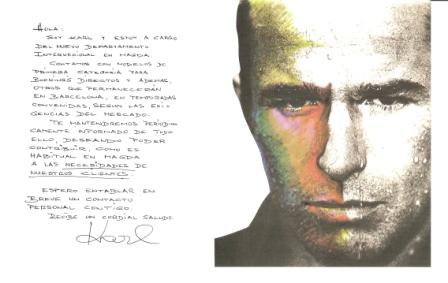 HOLA:
SOY KARL Y ESTOY A CARGO
DEL NUEVO DEPARTAMENTO
INTERNACIONAL EN MAGDA.
CONTAMOS CON MODELOS DE
PRIMERA CATEGORIA PARA
BOOKINGS DIRECTOS Y ADEMAS,
OTROS QUE PERMANECERAN
EN BARCELONA, EN TEMPORADAS
CONVENIDAS, SEGUN LAS EXI-
GENCIAS DEL MERCADO.
TE MANTENDREMOS PERIODI-
CAMENTE INFORMADO DE TODO
ELLO, DESEANDO PODER
CONTRIBUIR, COMO ES
HABITUAL EN MAGDA
A LAS NECESIDADES DE
NUESTROS CLIENTES.
ESPERO ENTABLAR EN
BREVE UN CONTACTO
PERSONAL CONTIGO.
RECIBE UN CORDIAL SALUDO
Karl